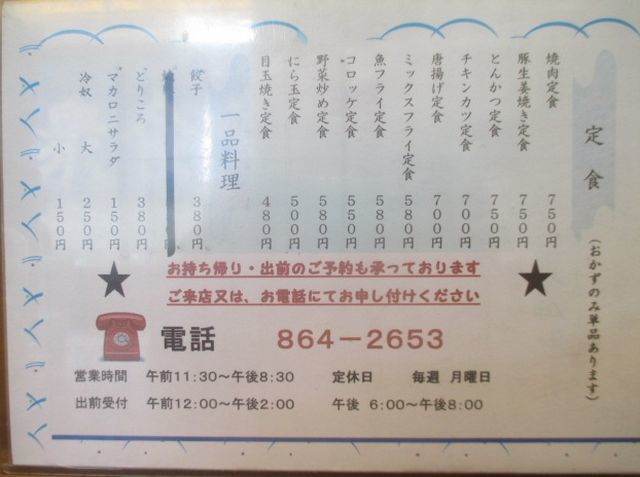 定食
(おかずのみ単品あります)
焼肉定食 750円
豚生姜焼き定食 750円
とんかつ定食 750円
チキンカツ定食 700円
唐揚げ定食 700円
ミックスフライ定食 580円
魚フライ定食 580円
コロッケ定食 550円
野菜炒め定食 580円
にら玉定食 500円
目玉焼き定食 480円
一品料理
餃子 380円
どりころ 380円
マカロニサラダ 150円
冷奴 大 250円
小 150円
お持ち帰り・出前のご予約も承っております
ご来店又は、お電話にてお申し付けください
電話 864-2653
営業時間 午前11:30~午後8:30 定休日 毎週 月曜日
出前受付 午前12:00~午後2:00 午後 6:00~午後8:00